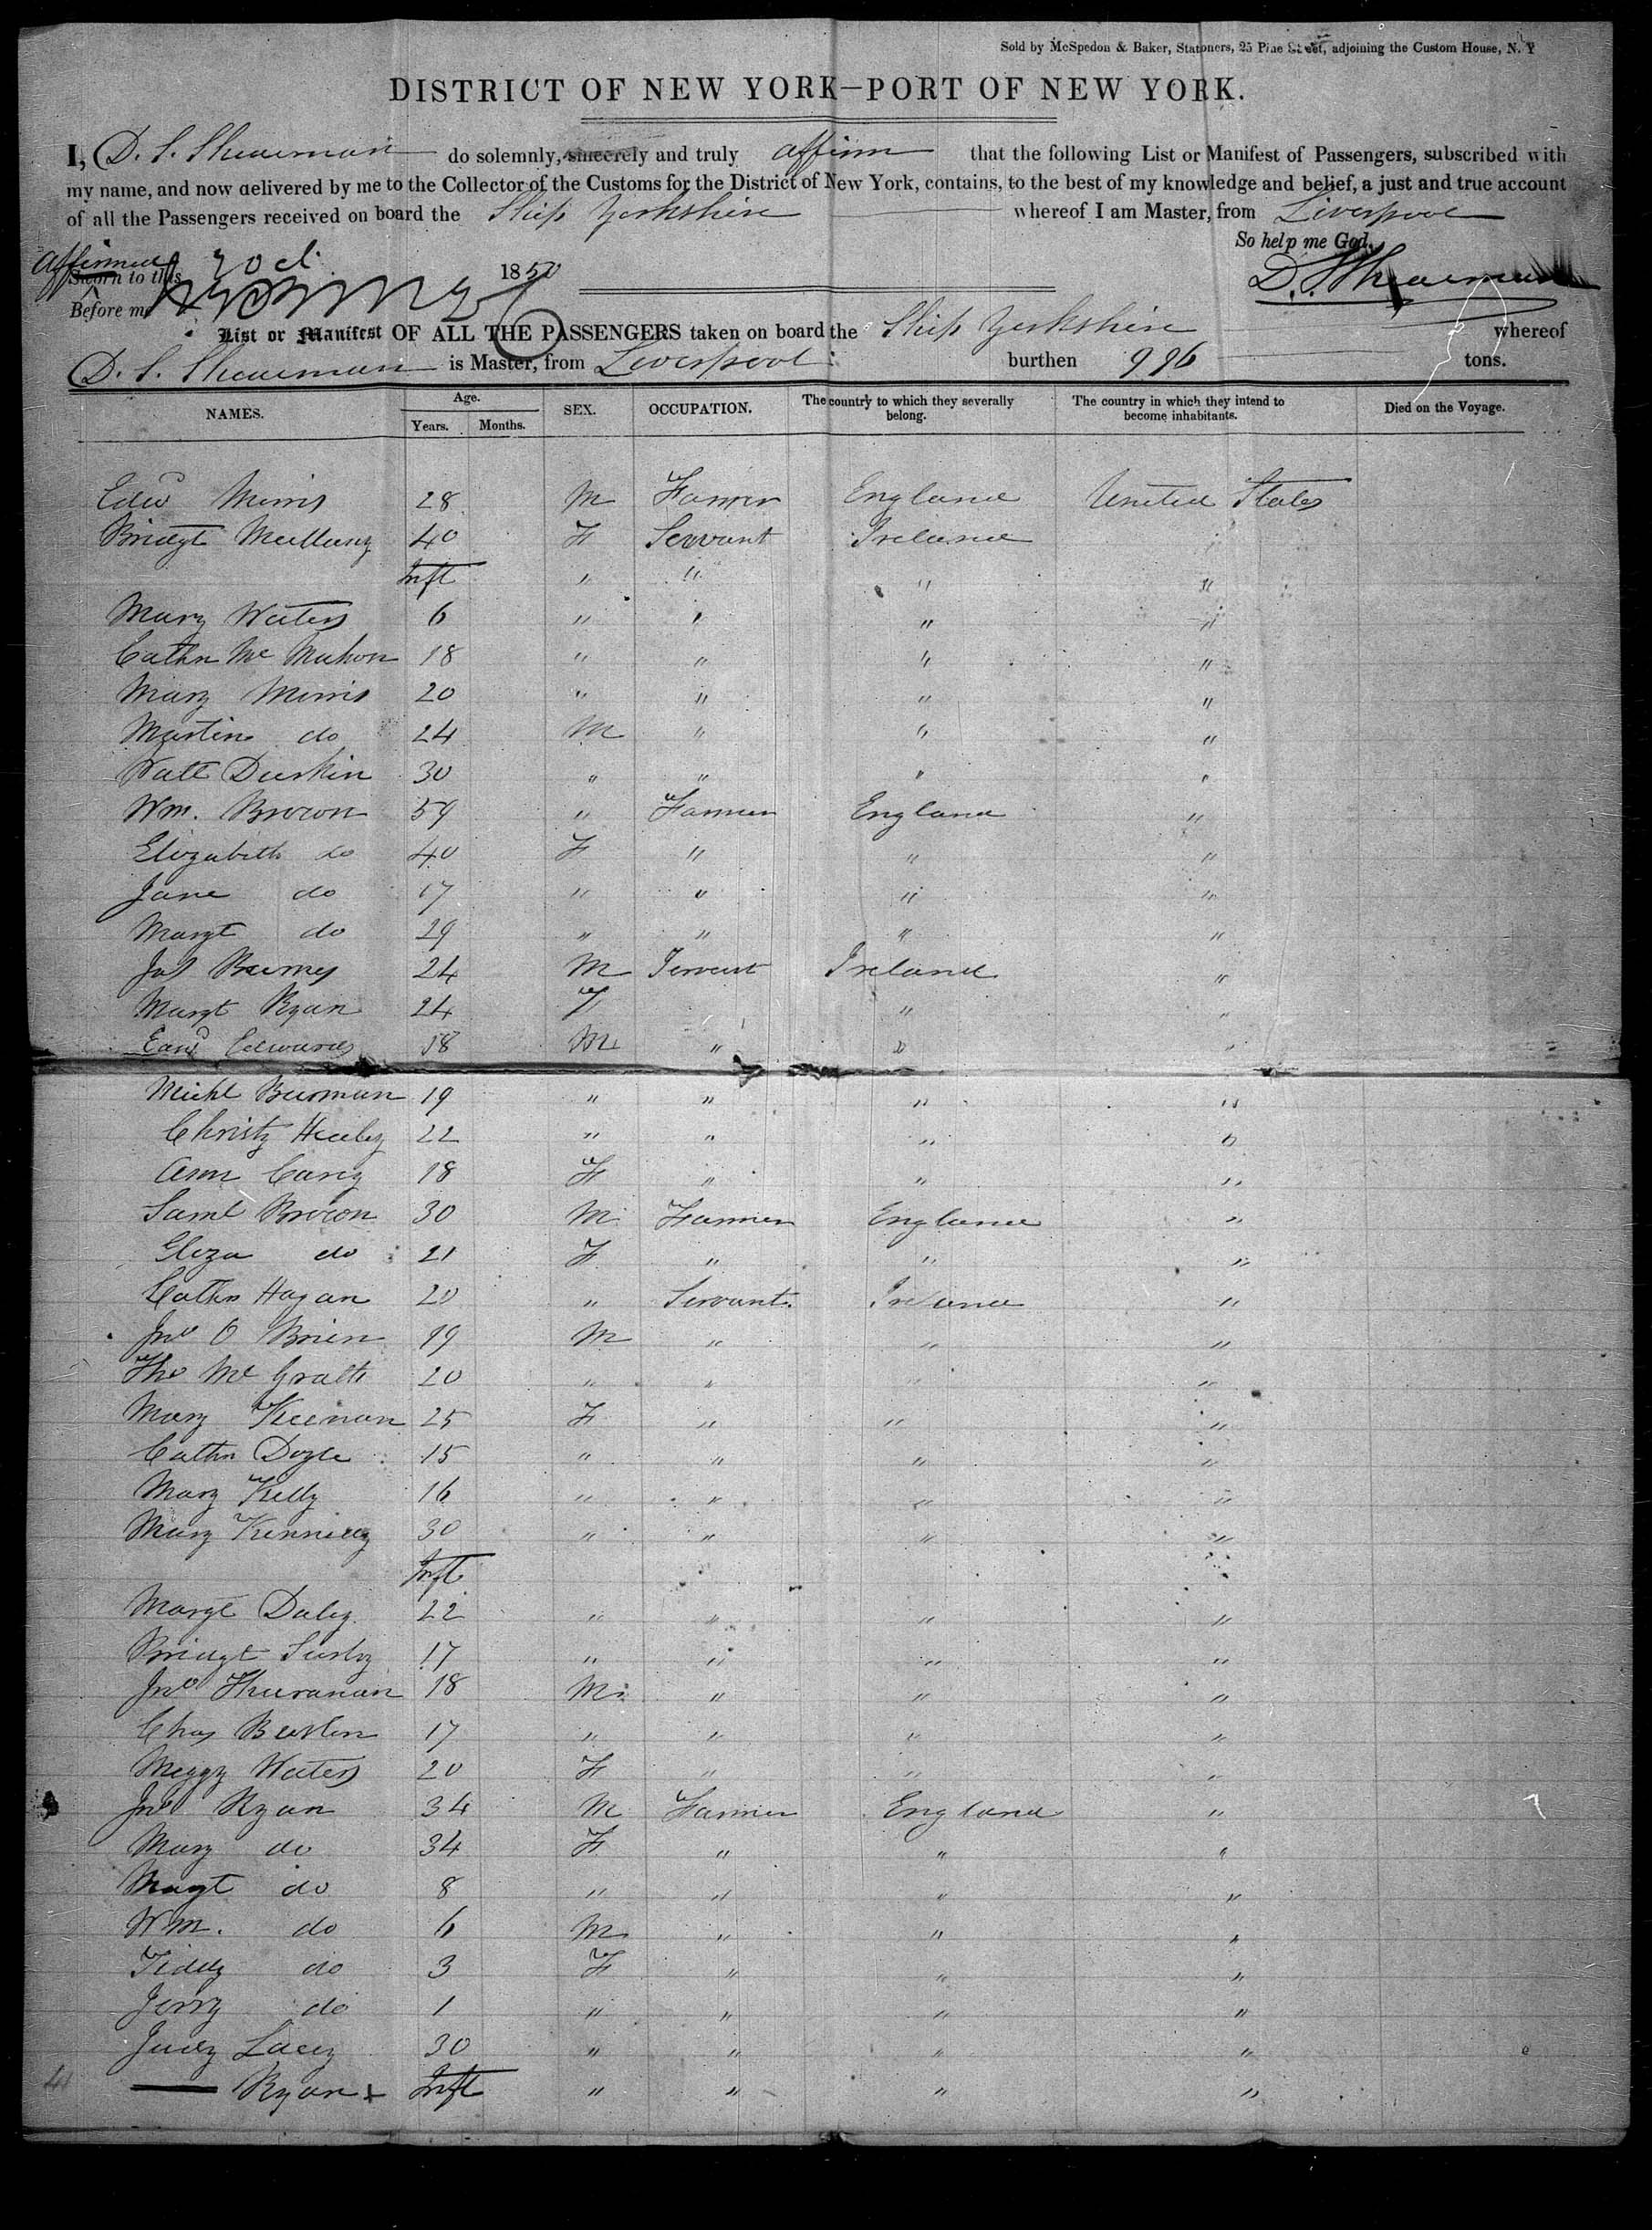 Sold by McSpedon & Baker, Stationers, 25 Pine Street, adjoining the Custom House, N. Y
DISTRICT OF NEW YORK—PORT OF NEW YORK.
I, D. S. Shearman do solemnly, sincerely and truly affirm that the following List or Manifest of Passengers, subscribed with
my name, and now delivered by me to the Collector of the Customs for the District of New York, contains, to the best of my knowledge and belief, a just and true account
of all the Passengers received on board the Ship Yorkshire whereof I am Master, from Liverpool
So help me God.
Affirmed
Sworn to this 1850
D. S. Shearman
Before me
List or Manifest OF ALL THE PASSENGERS taken on board the Ship Yorkshire whereof
D. S. Shearman is Master, from Liverpool burthen 996 tons.
NAMES. Age. Years. Months. SEX. OCCUPATION. The country to which they severally belong. The country in which they intend to become inhabitants. Died on the Voyage.
Edwd Morris 28 M Farmer England United States
Bridgt Mullany 40 F Servant Ireland "
Inft " " " "
Mary Waters 6 " " " "
Cathn Mc Mahon 18 " " " "
Mary Morris 20 " " " "
Martin do 24 M " " "
Patt Durkin 30 " " " "
Wm. Brown 59 " Farmer England "
Elizabeth do 40 F " " "
Jane do 17 " " " "
Margt do 29 " " " "
Jas 24 M Servant Ireland "
Margt Ryan 24 F " "
Edwd Edwards 18 M " " "
Michl 19 " " " "
Christy Healey 22 " " " "
Ann Carey 18 F " " "
Saml Brown 30 M Farmer England "
Eliza do 21 F " " "
Cathn Hagan 20 " Servant. Ireland "
Jno O Brien 19 M " " "
Tho Mc Grath 20 " " " "
Mary Keenan 25 F " " "
Cathn Doyle 15 " " " "
Mary Kelly 16 " " " "
Mary Kennedy 30 " " " "
Inft
Margt Daley 22 " " " "
Bridgt 17 " " " "
Jno 18 M " " "
Chas 17 " " " "
Meggy Waters 20 F " " "
Jno Ryan 34 M Farmer England "
Mary do 34 F " " "
Margt do 8 " " " "
Wm. do 6 M " " "
Teddy do 3 F " " "
Jerry do 1 " " " "
Judy Lacey 30 " " " "
Ryan + Inft " " " "